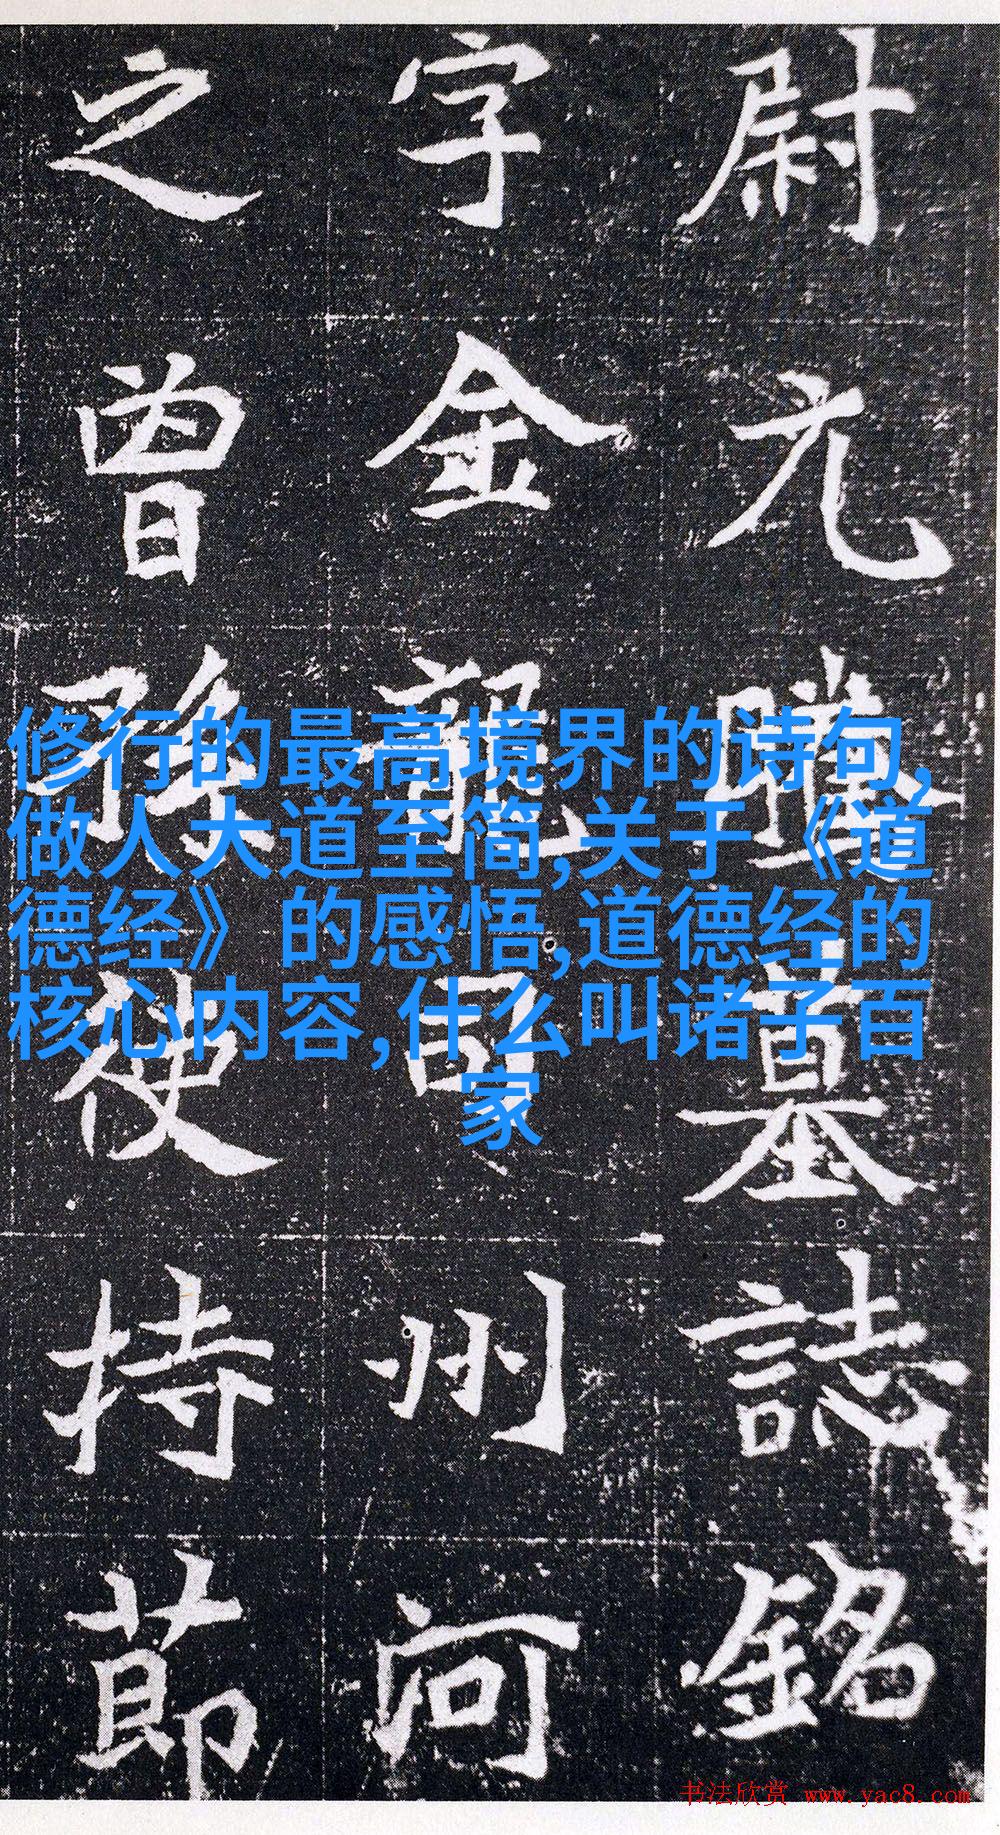 尉元騰墓誌銘
字金龍司州河
之曾孫使持節
修行的最高境界的诗句,
做人大道至简,关于《道
德经》的感悟,道德经的
核心内容,什么叫诸子百
家
书法欣赏 www.yac8.com